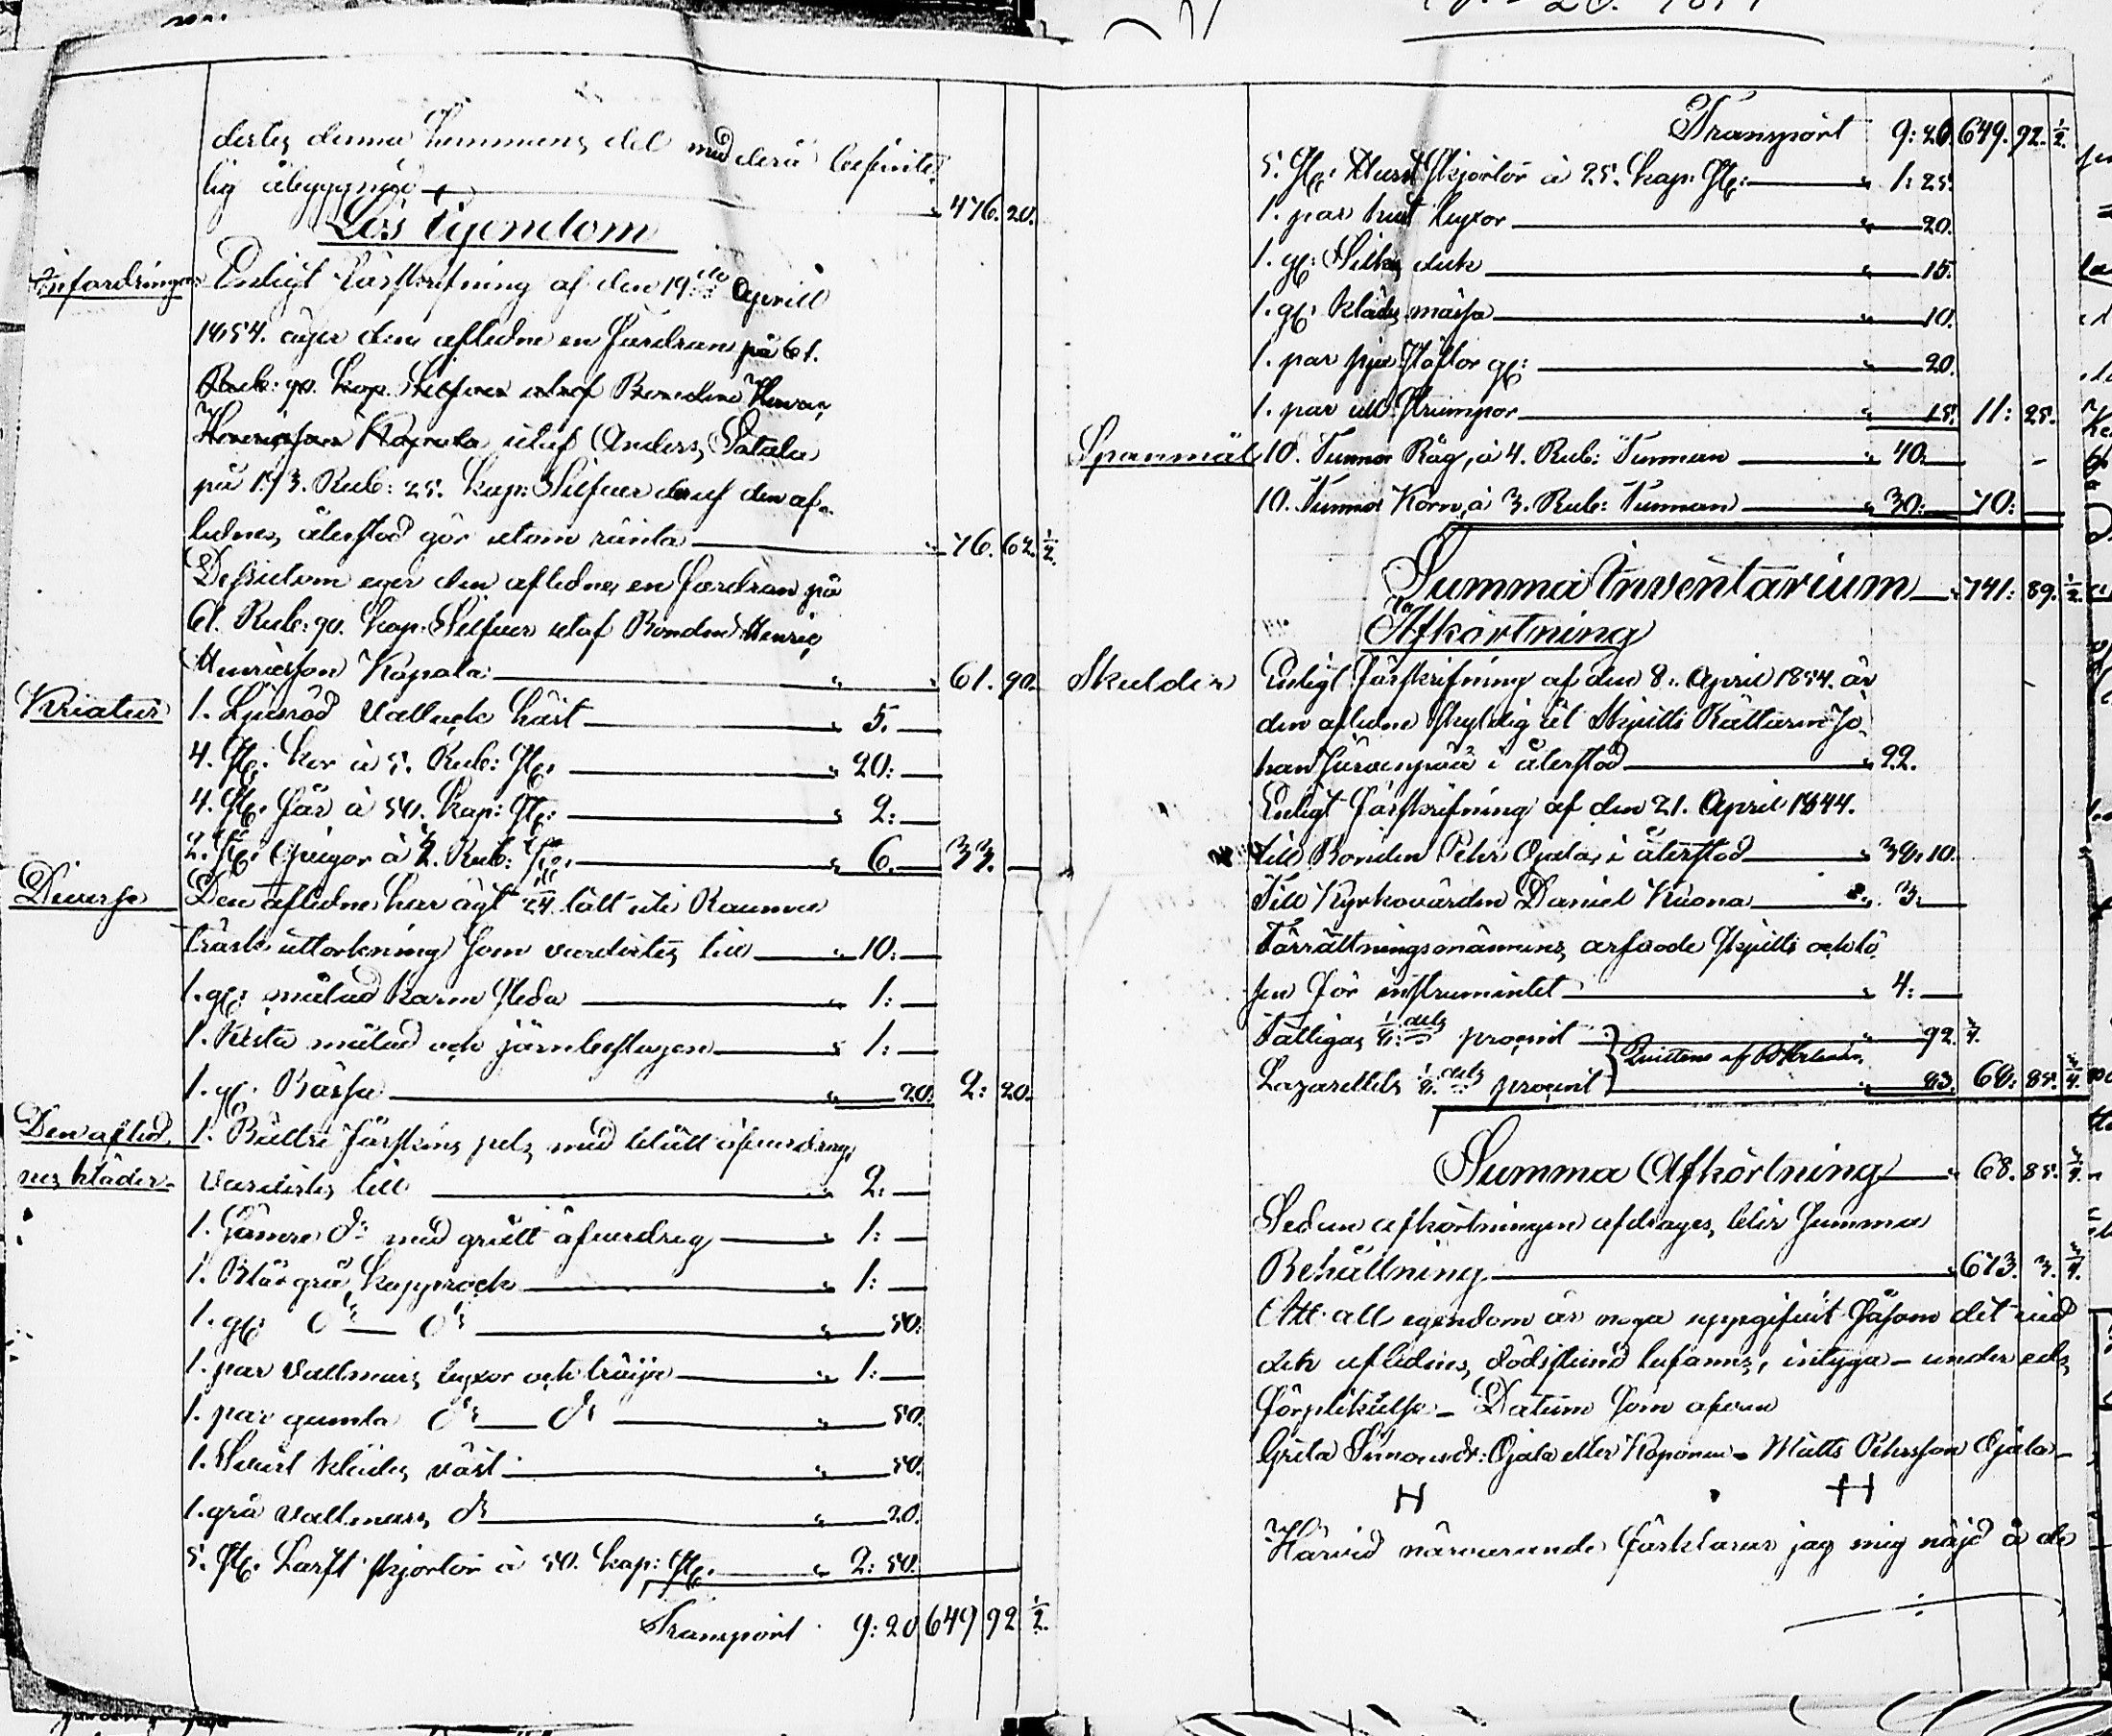 dertes denna hemmans del med derå befint-
lig åbyggnad — " 476. 20.
Lös Egendom
Infordringar Enligt Förskrifning af den 19de Aprill
1854. äger den aflidne en fordran på 61.
Rub: 90. kop. Silfver utaf Bonden Henric
Henricsson Kapala utaf Anders Satala
på 173. Rub: 25. kop: Silfver deruf den af-
lidnes återstod gör utom ränta — " 76. 62. 1/2.
Dessutom eger den aflidne en fordran på
61. Rub: 90. kop. Silfver utaf Bonden Henric
Henricsson Kapala — " 61. 90.
Kreatur 1. Ljusröd Vallack häst — " 5. —
4. St: kor à 5. Rub: St: — " 20: —
4. St. får à 50. kop: St: — " 2: —
2. St: Qvigor à Rub: St: — " 6. — 33. —
Diverse Den aflidne har ägt 24 lått uti Rauma
träsk uttorkning som värdertes till — " 10: —
1. gl: målad karm släda — " 1: —
1. Kista målad och järnbeslagen — " 1: —
1. gl: Bössa — " 20. 2: 20.
Den aflid- 1. Bättre fårskins pels med blått öfverdrag
nes kläder. värdertes till — " 2: —
1. Sämre do med grått öfverdrag — " 1: —
1. Blå grå kapprock — " 1: —
1. gl: do — do — " 50:
1. par vallmars byxor och tröija — " 1: —
1. par gamla do — do — " 50.
1. Svart klädes väst — " 50.
1. grå vallmars do — " 20.
5. St: Lärft skjortor à 50. kop: St: — " 2: 50.
Transport 9: 20 649 92 1/2.
Transport 9: 20. 649. 92. 1/2.
5. St: skjortor à 25. kop: St: — " 1: 25.
1. par byxor — " 20.
1. gl: Silkes duk — " 15.
1. gl: klädes mössa — " 10.
1. par stöflor gl: — " 20.
1. par ull strumpor — " 15. 11: 25.
Spannmål 10. Tunnor Råg, à 4. Rub: Tunnan — " 40: —
10. Tunnor Korn, à 3. Rub: Tunnan — " 30: — 70: —
Summa Inventarium — " 741: 89. 1/2.
Afkortning
Skulder Enligt Förskrifning af den 8. April 1854. är
den aflidne skyldig til Skjutts Rättaren Jo-
han i återstod — " 22.
Enligt Förskrifning af den 21. April 1844.
till Bonden Petter Ojala, i återstod — " 38. 10.
Till Kyrkovärden Daniel Kuona — " 3: —
Förrättningsmännens arfvode skjutts och lö-
sen för instrumentet — " 4: —
Fattigas 1/8 dels procent — " 92. 3/4.
Lazarettets 1/8 dels procent — " 83. 68: 85. 3/4.
Summa Afkortning — " 68. 85. 3/4.
Sedan afkortningen afdrages, blir Summa
Behållning — " 673. 3. 3/4.
Att all egendom är noga uppgifvit såsom det vid
den aflidnes dödsstund befanns, intyga — under eds
förpliktelse — Datum som ofvan
Greta Simonsdr: Ojala eller Koponen — Matts Petersson Ojala —
H H
Härvid närvarande förklarar jag mig nöjd å de